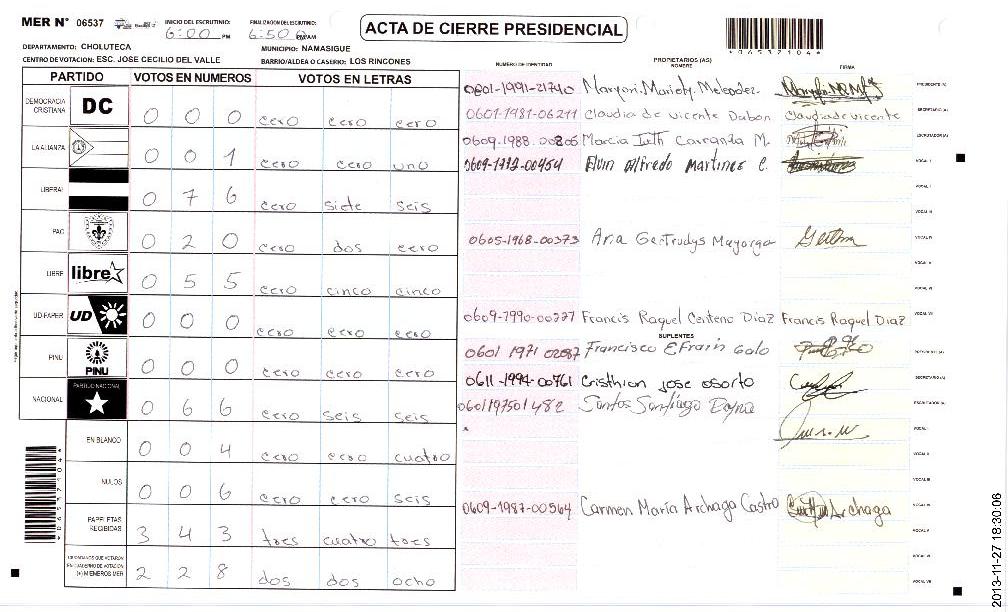 MER N° 06537
INICIO DEL ESCRUTINIO: 6:00 PM
FINALIZACION DEL ESCRUTINIO: 6:50 PM/AM
ACTA DE CIERRE PRESIDENCIAL
*0653710 4*
DEPARTAMENTO: CHOLUTECA
MUNICIPIO: NAMASIGUE
CENTRO DE VOTACION: ESC. JOSE CECILIO DEL VALLE
BARRIO/ALDEA O CASERIO: LOS RINCONES
PARTIDO VOTOS EN NUMEROS VOTOS EN LETRAS
DEMOCRACIA CRISTIANA DC 0 0 0 cero cero cero
LA ALIANZA 0 0 1 cero cero uno
LIBERAL 0 7 6 cero siete seis
PAC 0 2 0 cero dos cero
LIBRE libre 0 5 5 cero cinco cinco
UD-FAPER UD 0 0 0 cero cero cero
PINU PINU 0 0 0 cero cero cero
NACIONAL PARTIDO NACIONAL 0 6 6 cero seis seis
EN BLANCO 0 0 4 cero cero cuatro
NULOS 0 0 6 cero cero seis
PAPELETAS RECIBIDAS 3 4 3 tres cuatro tres
CIUDADANOS QUE VOTARON EN CUADERNO DE VOTACION (+) MIEMBROS MER 2 2 8 dos dos ocho
NUMERO DE IDENTIDAD
PROPIETARIOS (AS)
NOMBRE
FIRMA
0601-1991-21740 PRESIDENTE (A)
0601-1981-06211 Claudia de Vicente Dabon Claudia de Vicente SECRETARIO (A)
0609-1988-00206 Marcia M. ESCRUTADOR (A)
Elvin Alfredo Martinez C. VOCAL I
0605-1968-00373 Ana Gertrudys Mayorga
Francis Raquel Centeno Diaz Francis Raquel Diaz
SUPLENTES
0601 1971 02087 Francisco EFraín Galo
0611-1994-00761 Cristhian jose osorto SECRETARIO (A)
0601197501482 Santos Santiago ESCRUTADOR (A)
0609-1987-00564 Carmen María Archaga Castro Archaga
2013-11-27 18:30:06